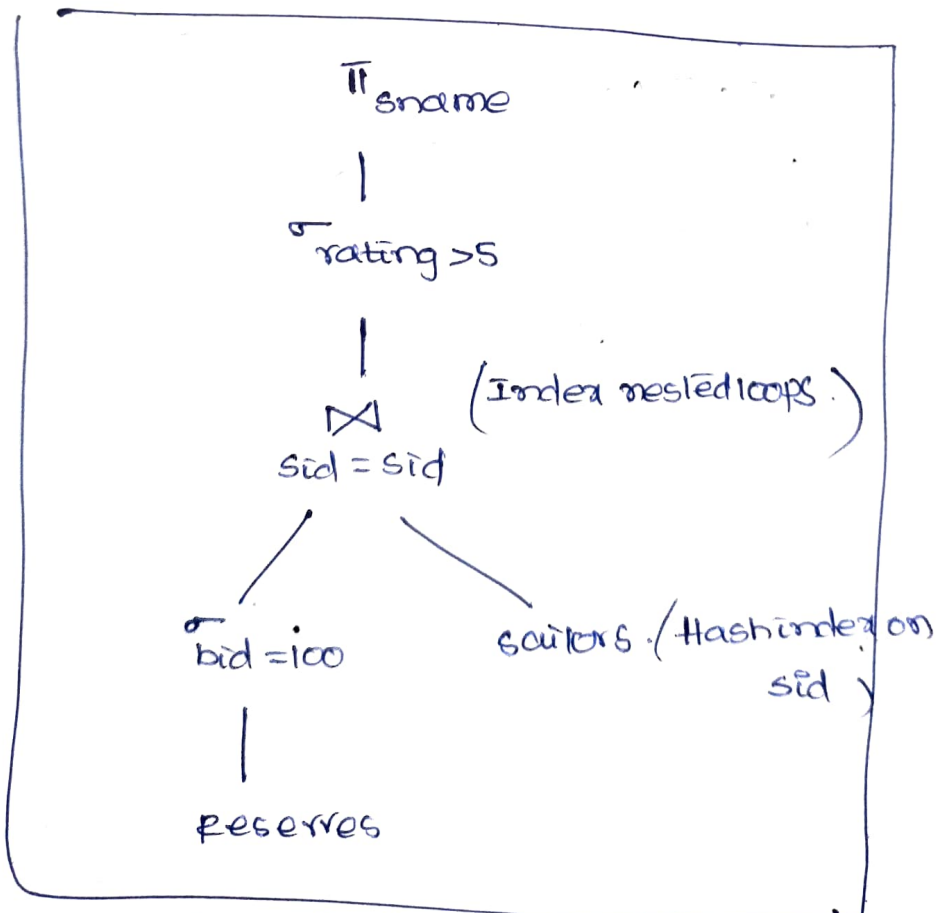 π sname
σ rating >5
⋈ (Index nested loops.)
sid = sid
σ bid = 100 sailors. (Hash index on
sid)
Reserves